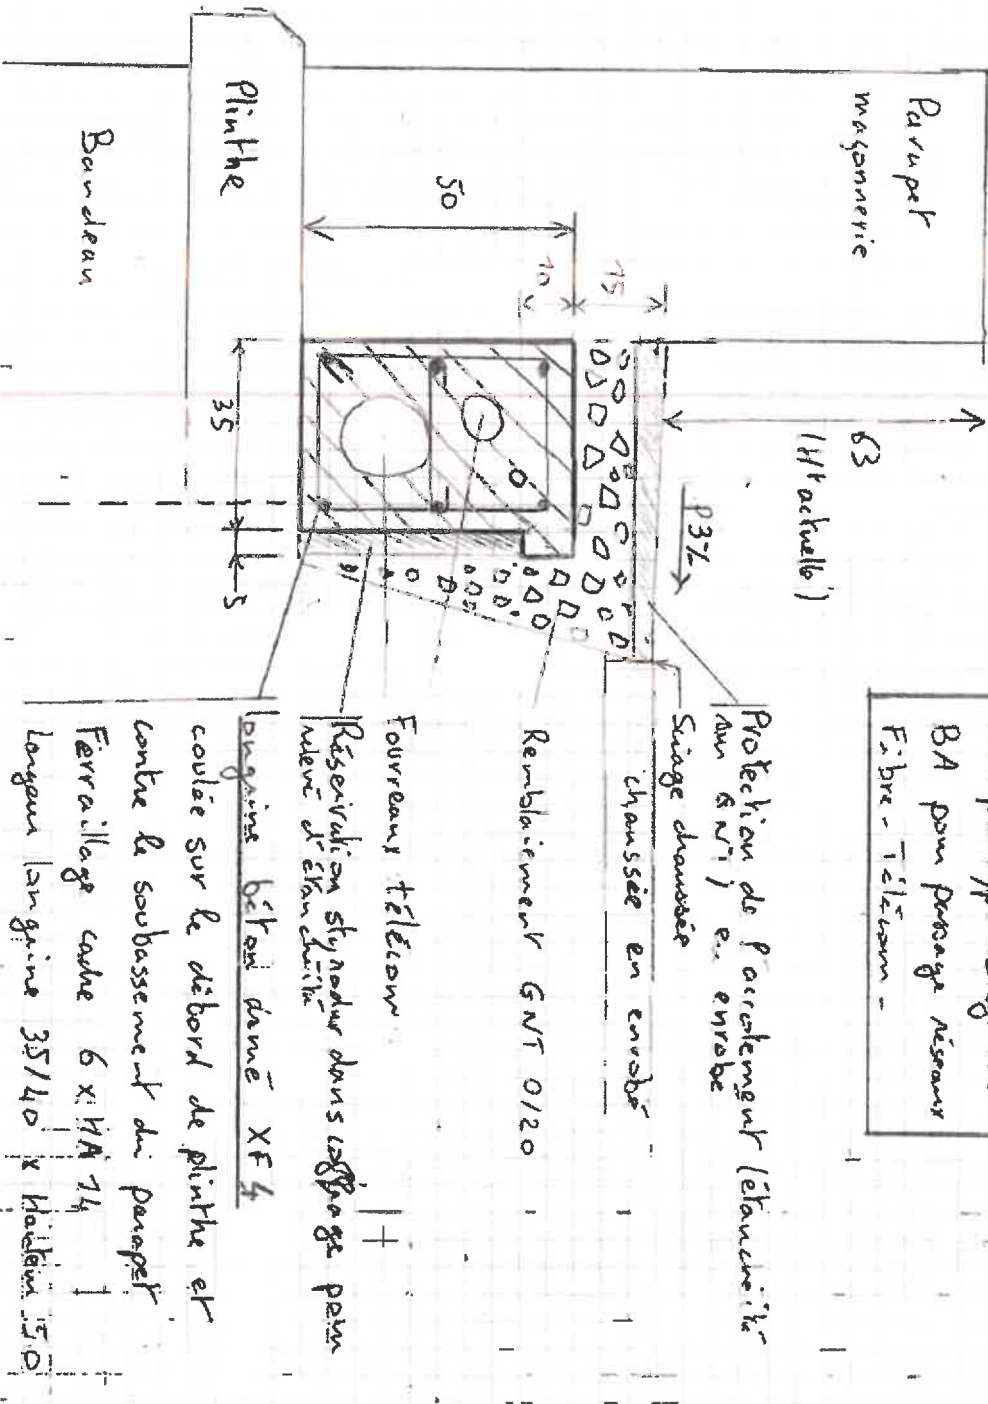 BA pour passage réseaux
Fibre - Télécom -
Parapet
maçonnerie
63
(Ht actuelle)
P3%
15
10
50
35
5
Plinthe
Bandeau
Protection de l'accotement (étanchéité
sur GNT) en enrobé
Sciage chaussée
chaussée en enrobé
Remblaiement GNT 0/20
Fourreaux télécom
Réservation styrodur dans coffrage pour
relevé d'étanchéité
Longrine béton armé XF4
coulée sur le débord de plinthe et
contre le soubassement du parapet
Ferraillage cadre 6 x HA 14
Largeur longrine 35/40 x Hauteur 50